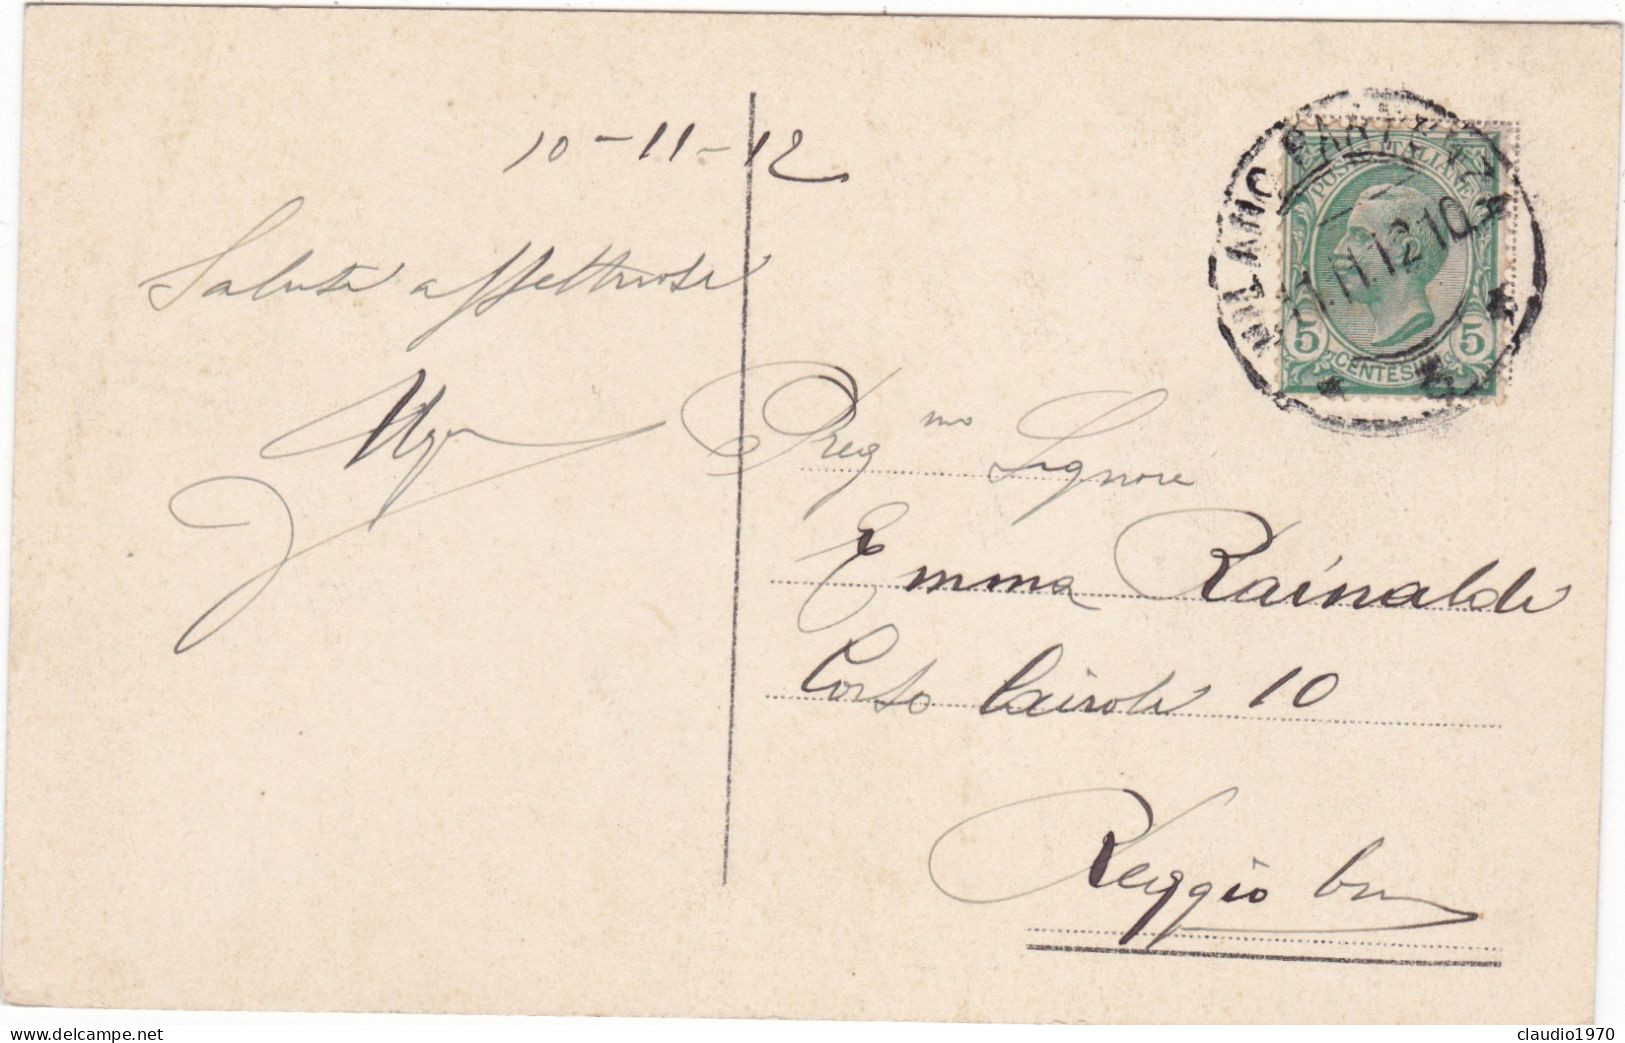 10-11-12
Saluti affettuosi
Preg mo Signore
Emma Rainaldi
Corso Cairoli 10
Reggio Em
MILANO PARTENZA
11.11.12 10
POSTE ITALIANE
5 5
CENTESIMI
delcampe.net
claudio1970